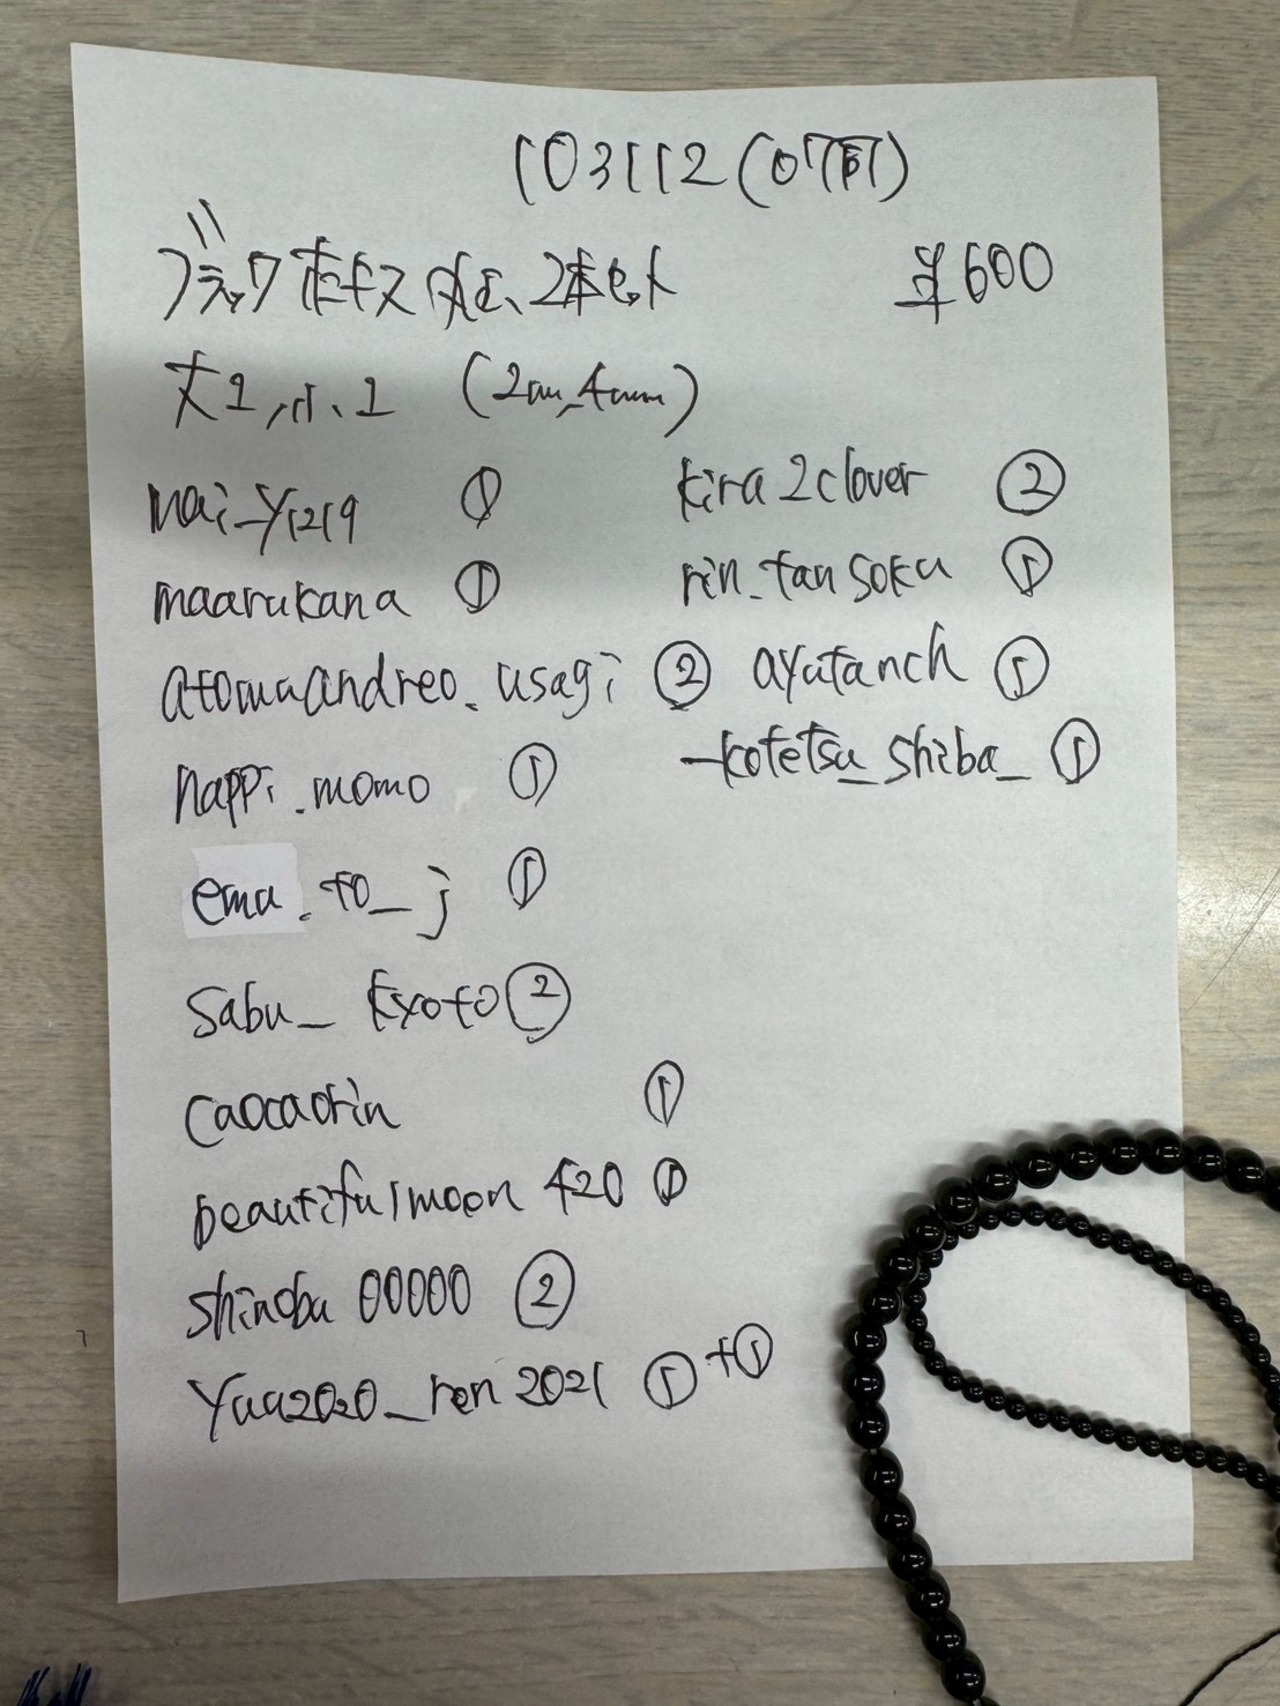 103112(0
ブラック 2本セット ¥600
大1, 小、1 (2mm、4mm)
mai_y1219 ①
maarukana ①
atomuandreo.usagi ②
nappi.momo ①
ema.to_j ①
sabu_kyoto ②
caocaorin ①
beautifulmoon420 ①
shinobu00000 ②
yuu2020_ren2021 ①+①
kira2clover ②
rin.tansoku ①
ayutanch ①
_kotetsu_shiba_ ①